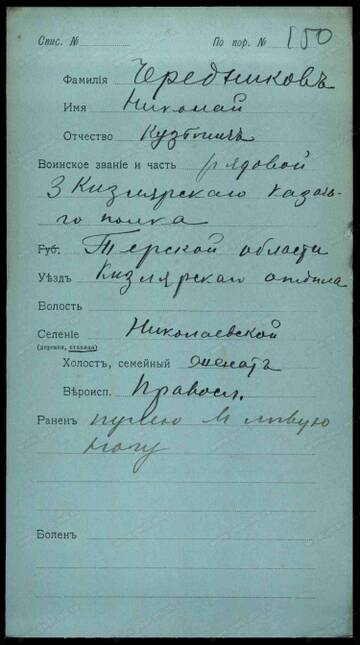 Спис. № По пор. № 150
Фамилія Чередниковъ
Имя Николай
Отчество Кузьмичъ
Воинское званіе и часть рядовой
3 Кизлярскаго казачь-
го полка
Губ. Терской области
Уѣздъ Кизлярскаго отдѣла
Волость
Селеніе Николаевской
(деревня, станица)
Холостъ, семейный женатъ
Вѣроисп. Правосл.
Раненъ пулею в лѣвую
ногу
Боленъ